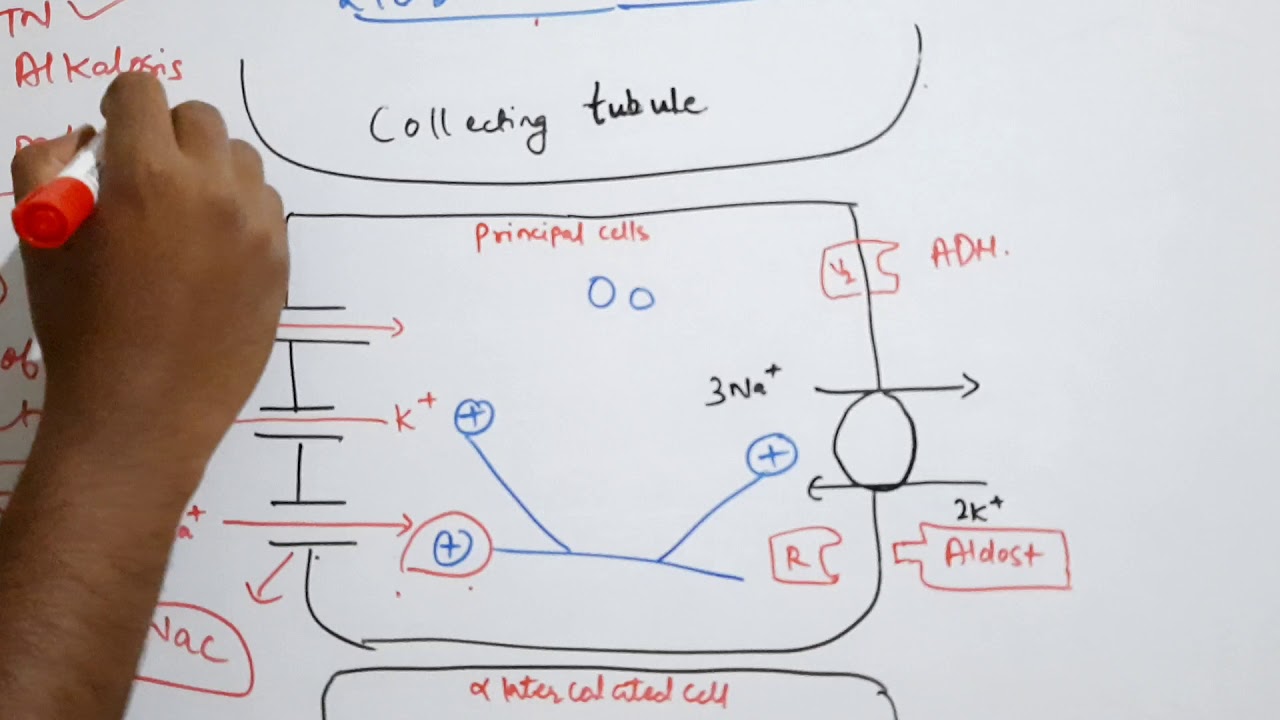 TN
Alkalosis
Collecting tubule
Principal cells
V2
ADH.
3Na+
K+
+
+
2K+
a+
+
R
Aldost
of
Nac
α Intercalated cell